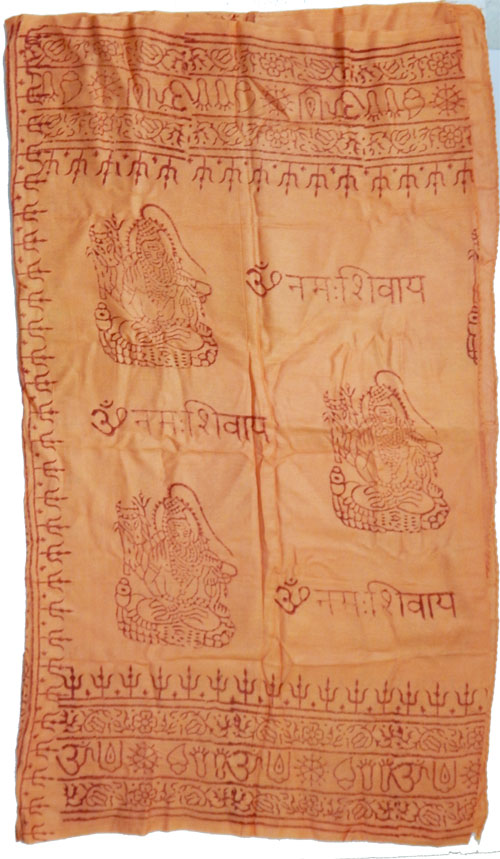 ॐ नमःशिवाय
ॐ नमःशिवाय
ॐ नमःशिवाय
ॐ
ॐ